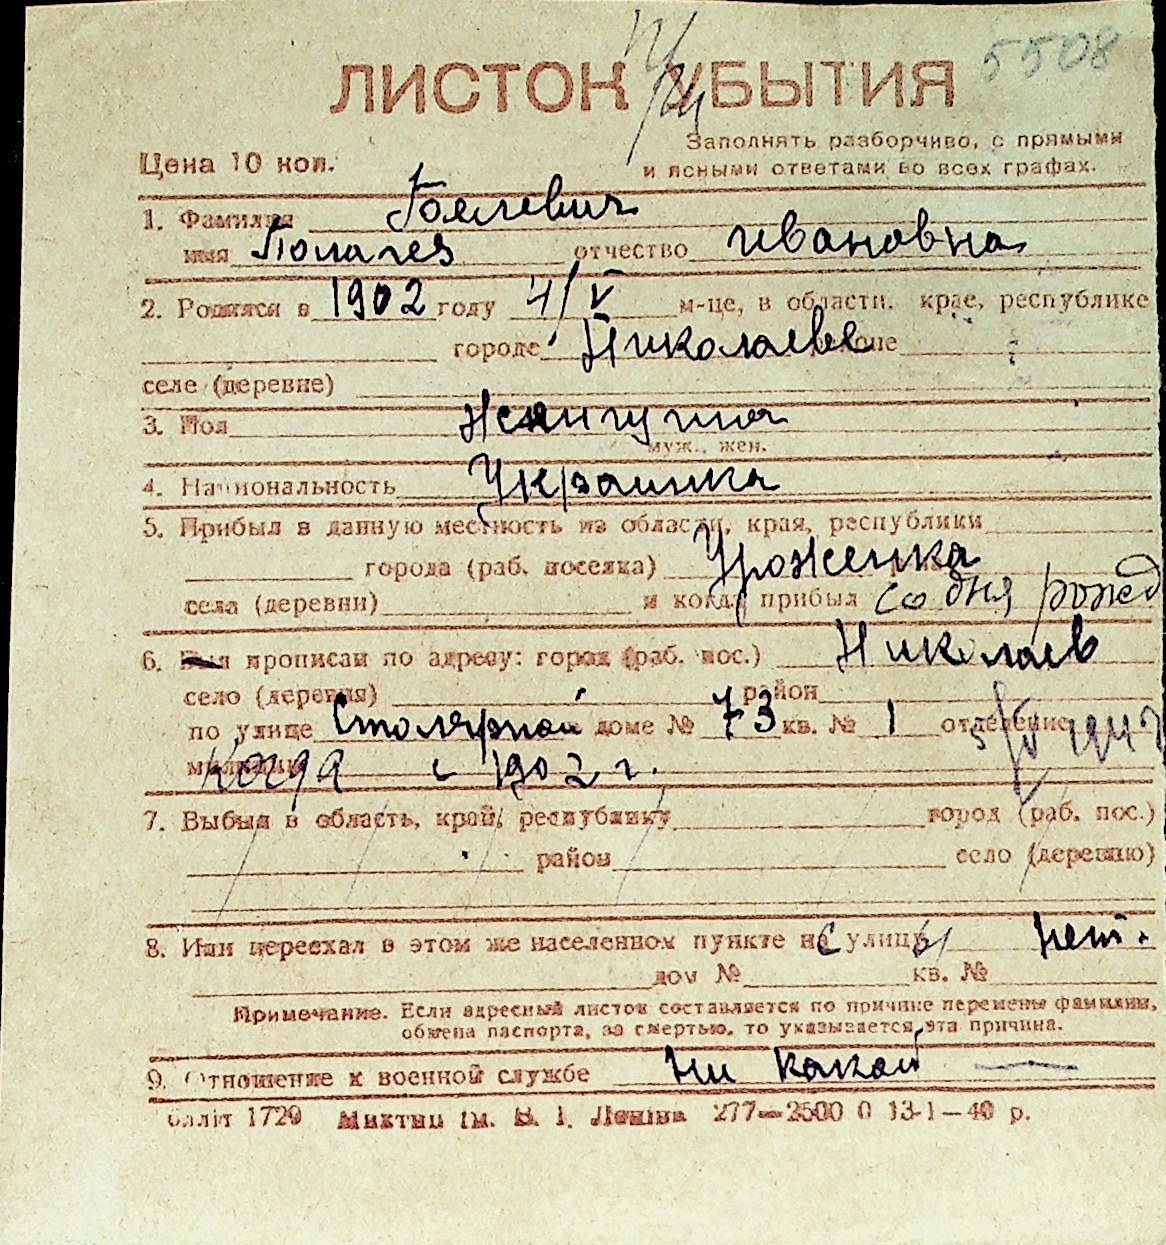 5508
ЛИСТОК УБЫТИЯ
Заполнять разборчиво, с прямыми
Цена 10 коп. и ясными ответами во всех графах.
1. Фамилия
имя отчество Ивановна
2. Родился в 1902 году 4/V м-це, в области, крае, республике
городе Николаеве районе
селе (деревне)
3. Пол Женщина
муж., жен.
4. Национальность Украинка
5. Прибыл в данную местность из области, края, республики
города (раб. поселка) Уроженка
села (деревни) и когда прибыл со дня рожд
6. Был прописан по адресу: город (раб. пос.) Николаев
село (деревня) район
по улице Столярной доме № 73 кв. № 1 отделение
милиции когда с 1902 г.
7. Выбыл в область, край, республику город (раб. пос.)
район село (деревню)
8. Или переехал в этом же населенном пункте с улицы нет.
дом № кв. №
Примечание. Если адресный листок составляется по причине перемены фамилии,
обмена паспорта, за смертью, то указывается эта причина.
9. Отношение к военной службе ни какой
1729 Миктип ім. В. І. Леніна 277—2500 0 13-1—40 р.